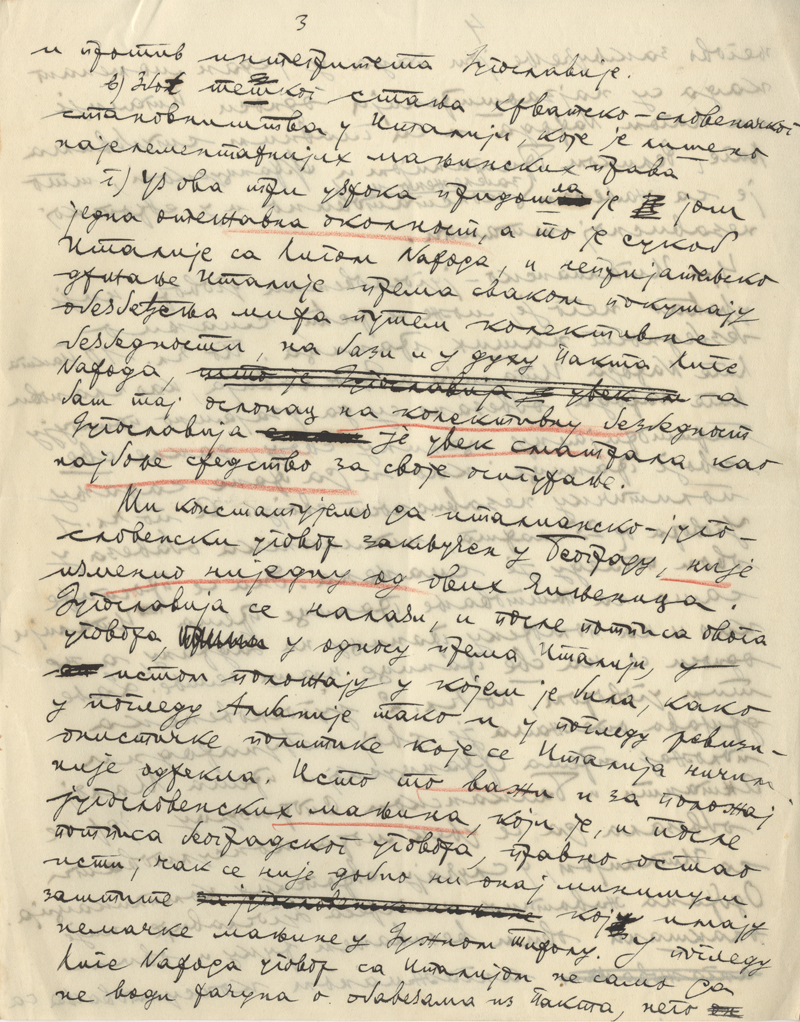 3
и против интегритета Југославије.
в) Због тешког стања хрватско-словеначког
становништва у Италији, које је лишено
најелементарнијих мањинских права
г.) Уз ова три узрока придошла је још
једна отежавна околност, а то је сукоб
Италије са Лигом Народа, и непријатељско
држање Италије према сваком покушају
обезбеђења мира путем колективне
безбедности, на бази и у духу Пакта Лиге
Народа, што је Југославија увек см а
баш тај ослонац на колективну безбедност
Југославија је увек сматрала као
најбоље средство за своје осигурање.
Ми констатујемо да италианско-југо-
словенски уговор закључен у Београду, није
изменио ниједну од ових чињеница.
Југославија се налази, и после потписа овога
уговора, у односу према Италији, у
истом положају у којем је била, како
у погледу Албаније тако и у погледу ревизи-
онистичке политике које се Италија ничим
није одрекла. Исто то важи и за положај
југословенских мањина, који је, и после
потписа београдског уговора, правно остао
исти; чак се није добио ни онај минимум
заштите за југословенске мањине коју имају
немачке мањине у Јужном Тиролу. У погледу
Лиге Народа уговор са Италијом не само да
не води рачуна о обавезама из Пакта, него